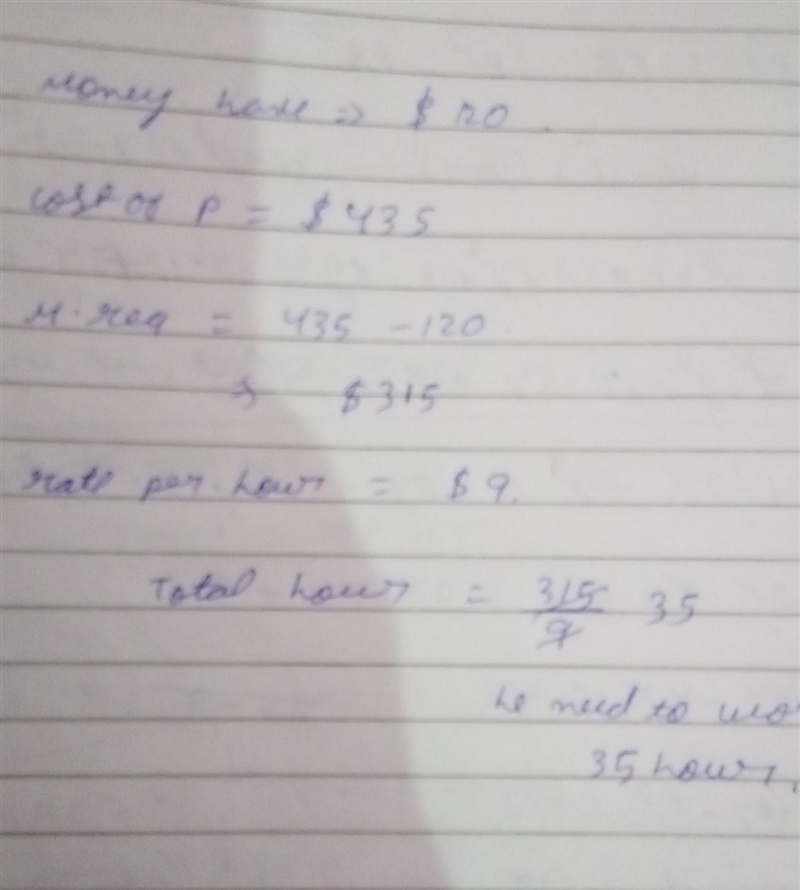 Money have ⇒ $120.
cost of P = $435
M. req = 435 - 120
⇒ $315
rate per hour = $9.
Total hour = 315/9 35
he need to wo
35 hour.